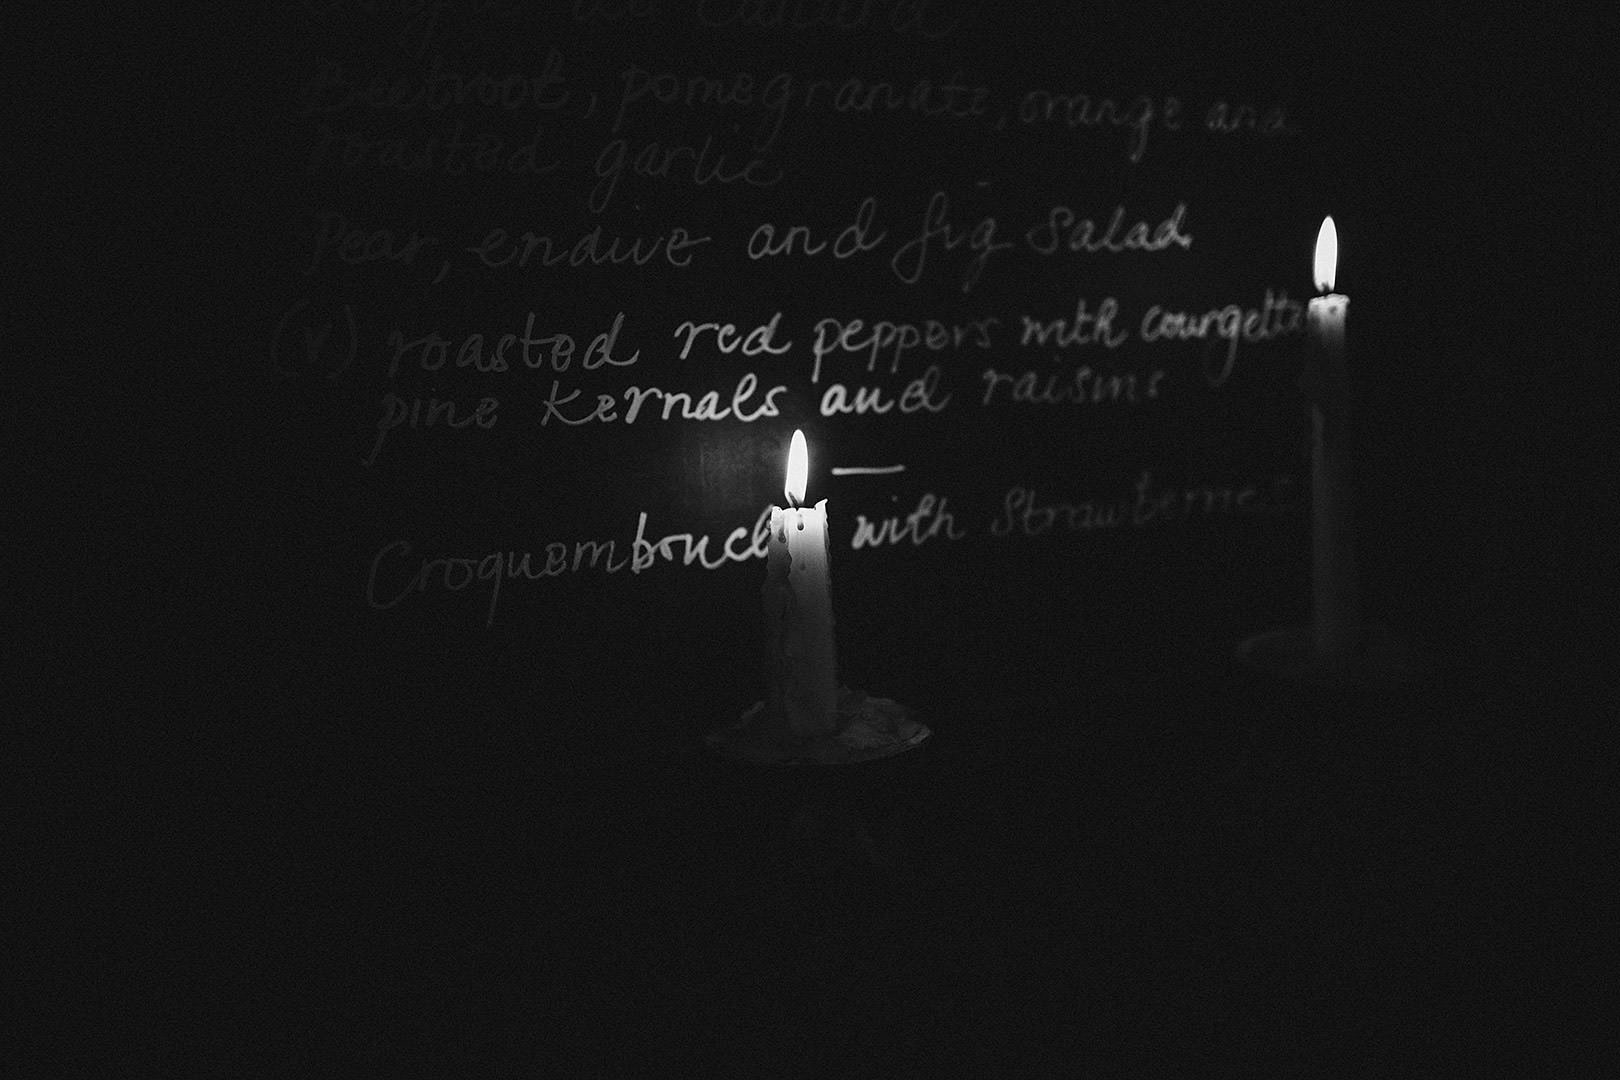 Beetroot, pomegranate, orange and
roasted garlic
Pear, endive and fig salad
(v) roasted red peppers with courgette
pine kernals and raisins
—
with Strawberries